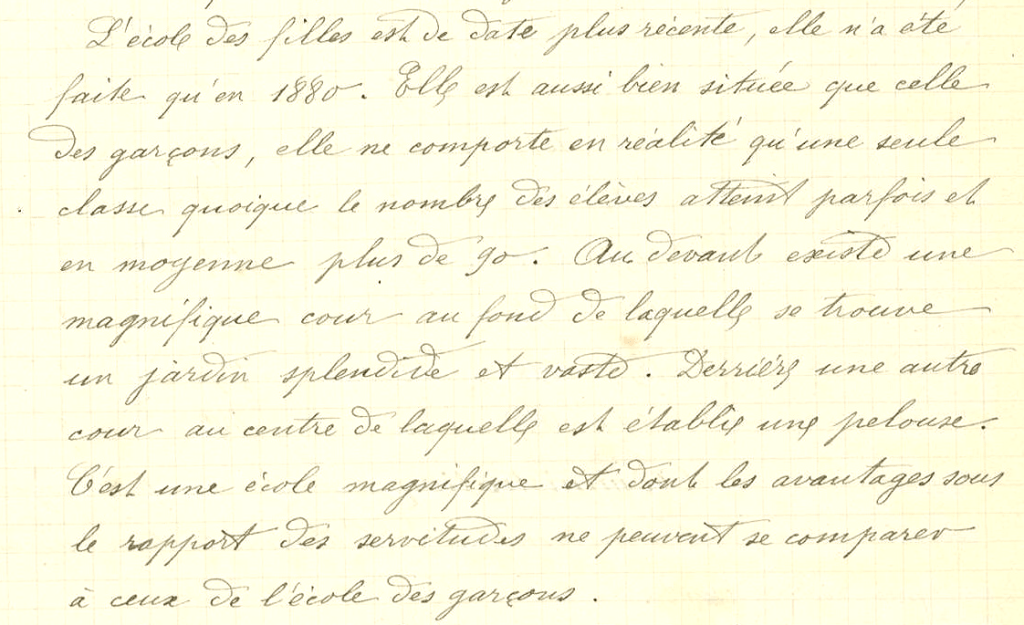 L'école des filles est de date plus récente, elle n'a été
faite qu'en 1880. Elle est aussi bien située que celle
des garçons, elle ne comporte en réalité qu'une seule
classe quoique le nombre des élèves atteint parfois et
en moyenne plus de 90. Au devant existe une
magnifique cour au fond de laquelle se trouve
un jardin splendide et vaste. Derrière une autre
cour au centre de laquelle est établie une pelouse.
C'est une école magnifique et dont les avantages sous
le rapport des servitudes ne peuvent se comparer
à ceux de l'école des garçons.